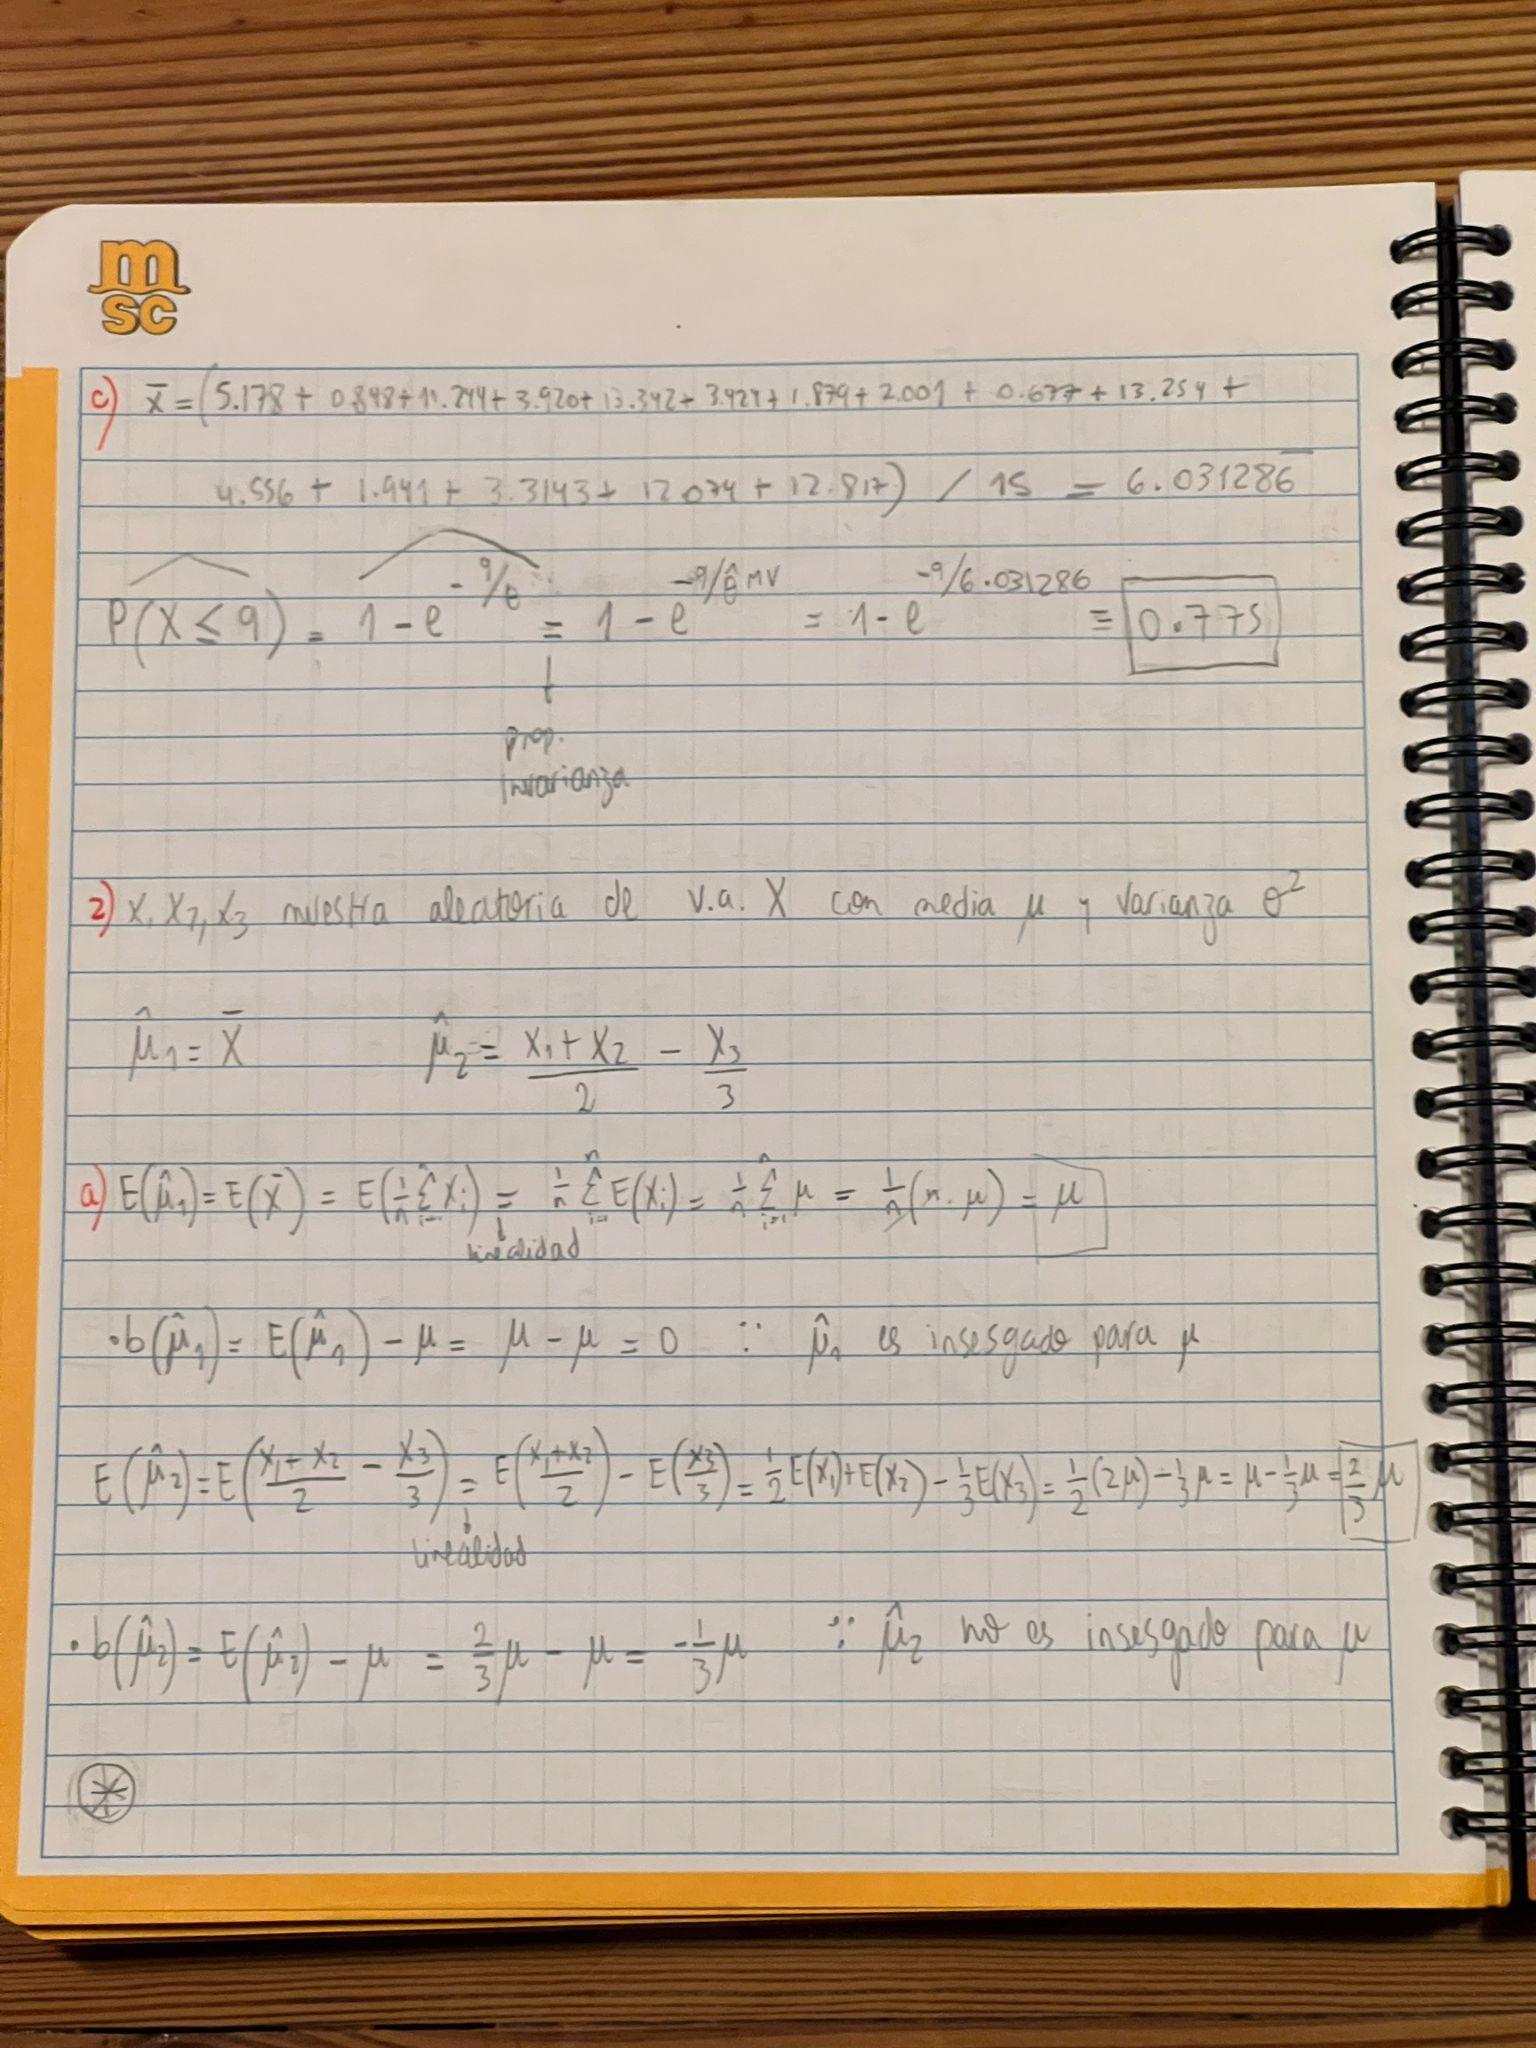 m
sc
c) x̄ = (5.178 + 0.848 + 11.244 + 3.920 + 13.342 + 3.424 + 1.879 + 2.001 + 0.677 + 13.254 +
4.556 + 1.941 + 3.3143 + 12.074 + 12.817) / 15 = 6.031286
P(X ≤ 9) = 1 - e^{-9/θ} = 1 - e^{-9/θ̂ MV} = 1 - e^{-9/6.031286} = 0.775
prop.
invarianza
2) X, X2, X3 muestra aleatoria de v.a. X con media μ y varianza θ²
μ̂1 = X̄ μ̂2 = (X1 + X2)/2 - X3/3
a) E(μ̂1) = E(X̄) = E(1/n Σ Xi) = 1/n Σ E(Xi) = 1/n Σ μ = 1/n (n · μ) = μ
linealidad
• b(μ̂1) = E(μ̂1) - μ = μ - μ = 0 ∵ μ̂1 es insesgado para μ
E(μ̂2) = E((X1 + X2)/2 - X3/3) = E((X1 + X2)/2) - E(X3/3) = 1/2 E(X1) + E(X2) - 1/3 E(X3) = 1/2 (2μ) - 1/3 μ = μ - 1/3 μ = 2/3 μ
linealidad
• b(μ̂2) = E(μ̂2) - μ = 2/3 μ - μ = -1/3 μ ∵ μ̂2 no es insesgado para μ